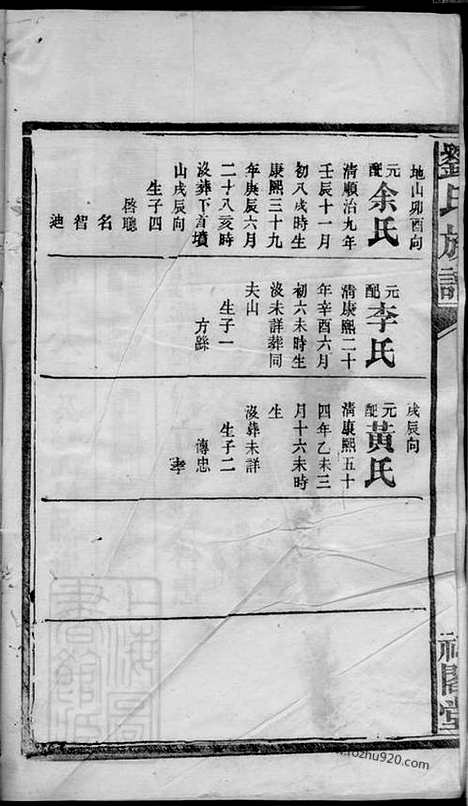 劉氏族譜
地山卯酉向
元配余氏
清順治九年
壬辰十一月
初八戌時生
康熙三十九
年庚辰六月
二十八亥時
沒葬下首墳
山戌辰向
生子四
啓聰
名
智
迪
元配李氏
清康熙二十
年辛酉六月
初六未時生
沒未詳葬同
夫山
生子一
方蹂
戌辰向
元配黃氏
清康熙五十
四年乙未三
月十六未時
生
沒葬未詳
生子二
傳忠
孝
閣堂
上海圖書館藏
rozhu920.com